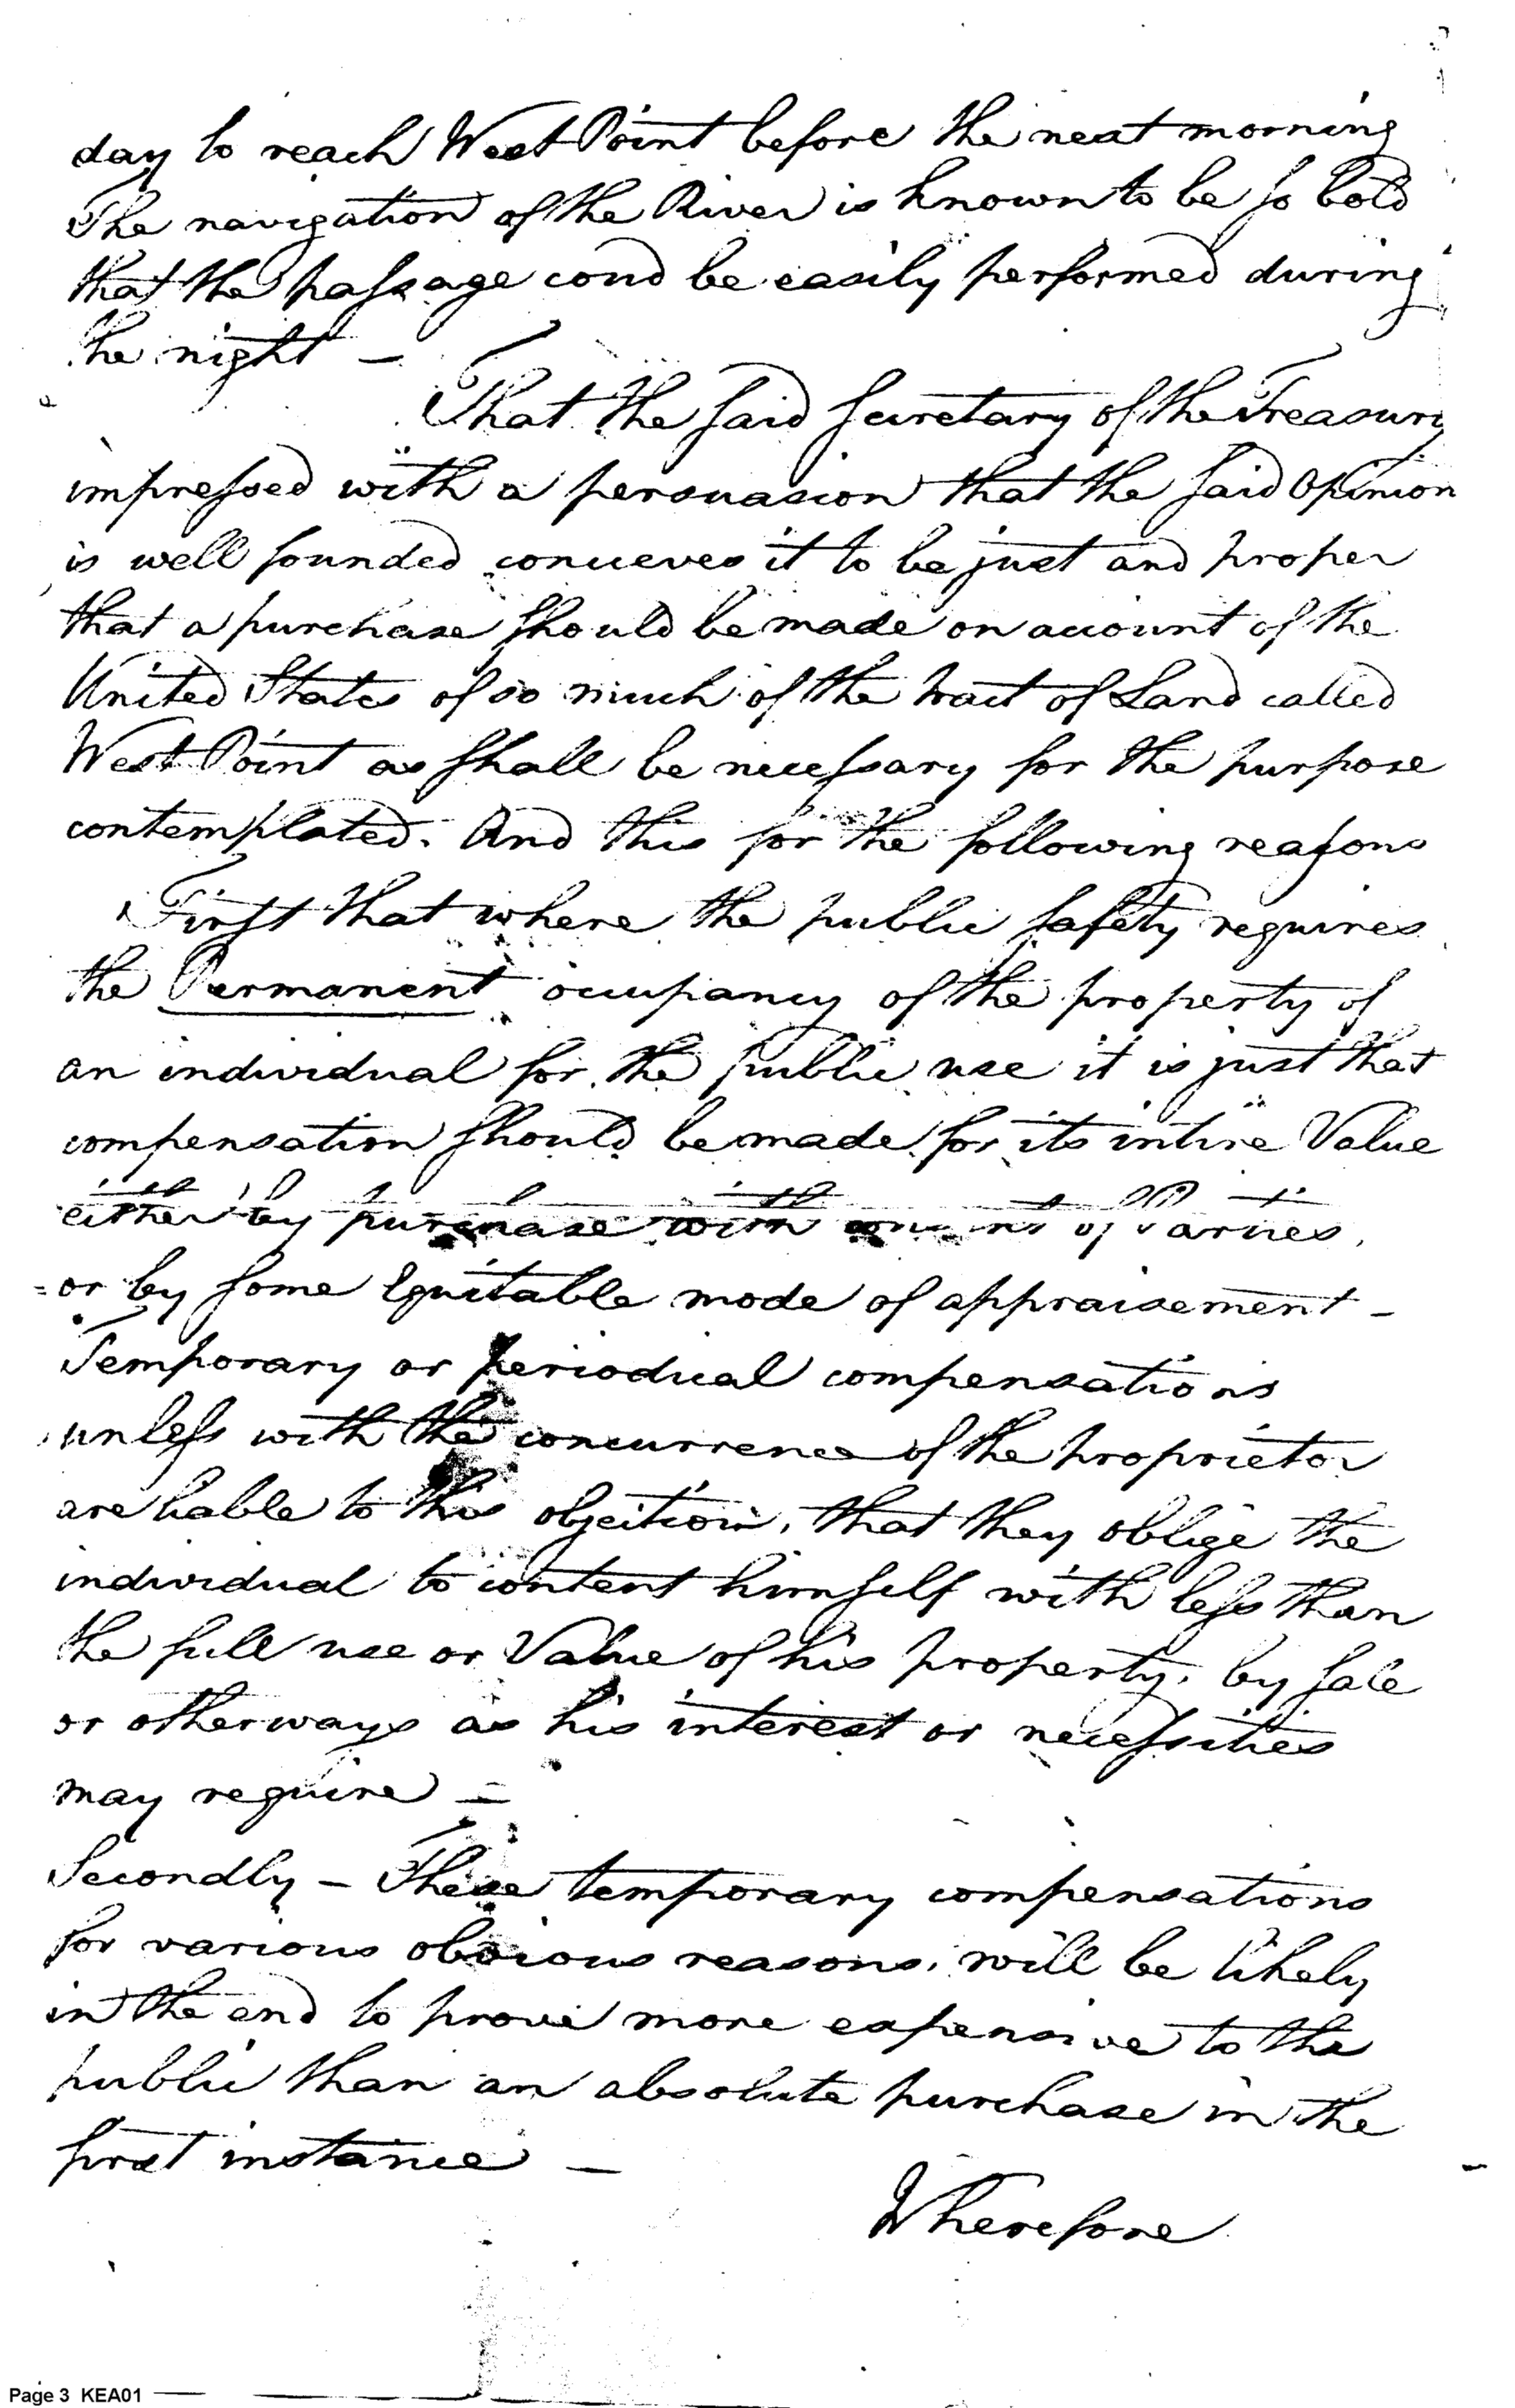 day to reach West Point before the next morning
The navigation of the River is known to be so bold
that the passage coud be easily performed during
the night —
That the said Secretary of the Treasury
impressed with a persuasion that the said Opinion
is well founded conceives it to be just and proper
that a purchase should be made on account of the
United States of so much of the tract of Land called
West Point as shall be necessary for the purpose
contemplated. And this for the following reasons
First that where the public safety requires
the Permanent occupancy of the property of
an individual for the public use it is just that
compensation should be made for its intire Value
either by purchase with consent of Parties,
or by some Equitable mode of appraisement –
Temporary or periodical compensations
unless with the concurrence of the proprietor
are liable to this objection, that they oblige the
individual to content himself with less than
the full use or Value of his property, by sale
or otherways as his interest or necessities
may require –
Secondly – These temporary compensations
for various obvious reasons, will be likely
in the end to prove more expensive to the
public than an absolute purchase in the
first instance —
Wherefore
Page 3 KEA01